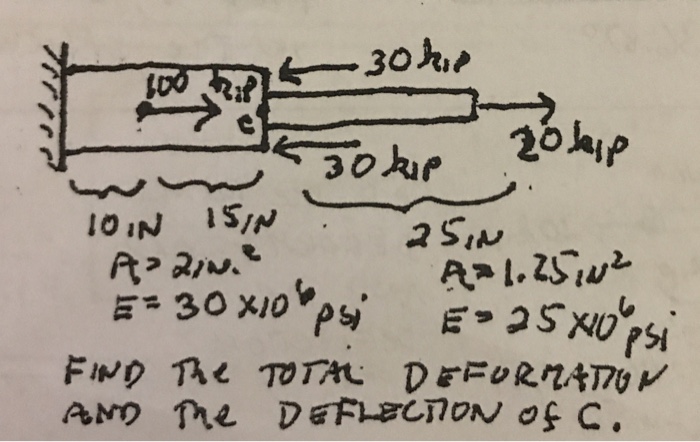 30 kip
100 kip
C
20 kip
30 kip
10 IN 15 IN 25 IN
A = 2 IN.² A = 1.25 IN²
E = 30 X10⁶ psi E = 25 X10⁶ psi
FIND The TOTAL DEFORMATION
AND The DEFLECTION of C.